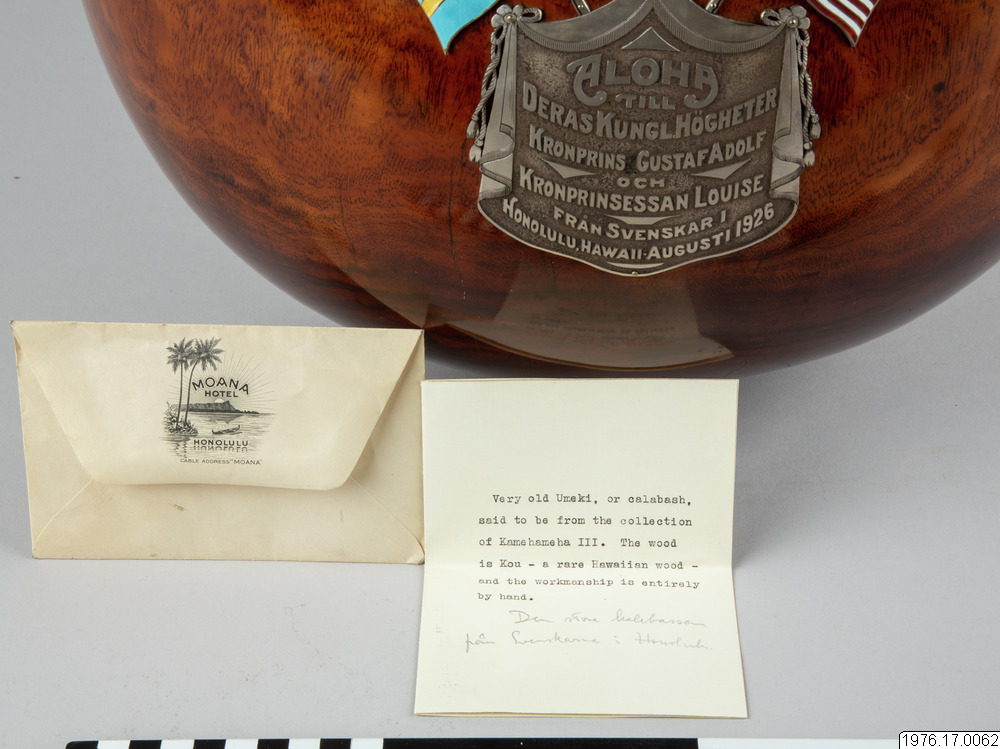 ALOHA
TILL
DERAS KUNGL. HÖGHETER
KRONPRINS GUSTAF ADOLF
OCH
KRONPRINSESSAN LOUISE
FRÅN SVENSKAR I
HONOLULU, HAWAII-AUGUSTI 1926
MOANA
HOTEL
HONOLULU
CABLE ADDRESS "MOANA"
Very old Umeki, or calabash,
said to be from the collection
of Kamehameha III. The wood
is Kou - a rare Hawaiian wood -
and the workmanship is entirely
by hand.
Den stora kalebassen
från Svenskarna i Honolulu.
1976.17.0062